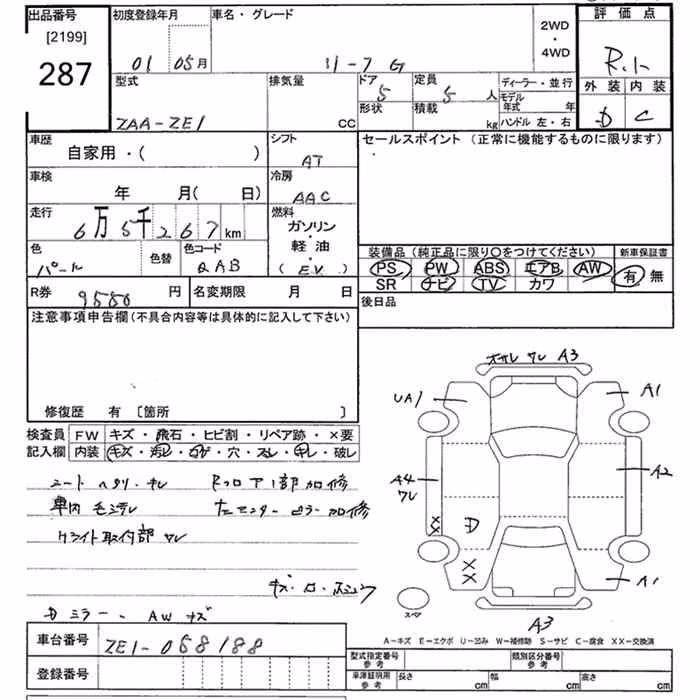 出品番号
[2199]
287
初度登録年月
01 05月
車名・グレード
リーフ G
2WD
・
4WD
評価点
R.1
外装 内装
D C
型式
ZAA-ZE1
排気量
CC
ドア
5
定員
5 人
形状
積載
kg
ディーラー・並行
モデル年式 年
ハンドル 左・右
車歴
自家用・( )
シフト
AT
セールスポイント (正常に機能するものに限ります)
車検
年 月( 日)
冷房
AAC
走行
6万5千267km
燃料
ガソリン
・
軽・油
(EV)
色
パール
色替
色コード
QAB
装備品 (純正品に限り○をつけてください)
新車保証書
PS PW ABS エアB AW
有 無
SR ナビ TV カワ
R券
9580 円
名変期限 月 日
後日品
注意事項申告欄(不具合内容等は具体的に記入して下さい)
修復歴 有 [箇所 ]
検査員
記入欄
FW キズ・飛石・ヒビ割・リペア跡・×要
内装 キズ・汚レ・コゲ・穴・スレ・キレ・破レ
シートヘタリ・キレ Rフロアー部加修
車内毛ヨゴレ 左センターピラー加修
ライト取付部ワレ
Dミラー、AWキズ
ワレ A3
UA1
A1
A4
ワレ
A2
XX
D
XX
A1
スペア
A3
A-キズ E-エクボ U-凹み W-補修跡 S-サビ C-腐食 XX-交換済
車台番号
ZE1-058188
型式指定番号
参考
類別区分番号
参考
登録番号
車庫証明用
参考
長さ cm
幅 cm
高さ cm